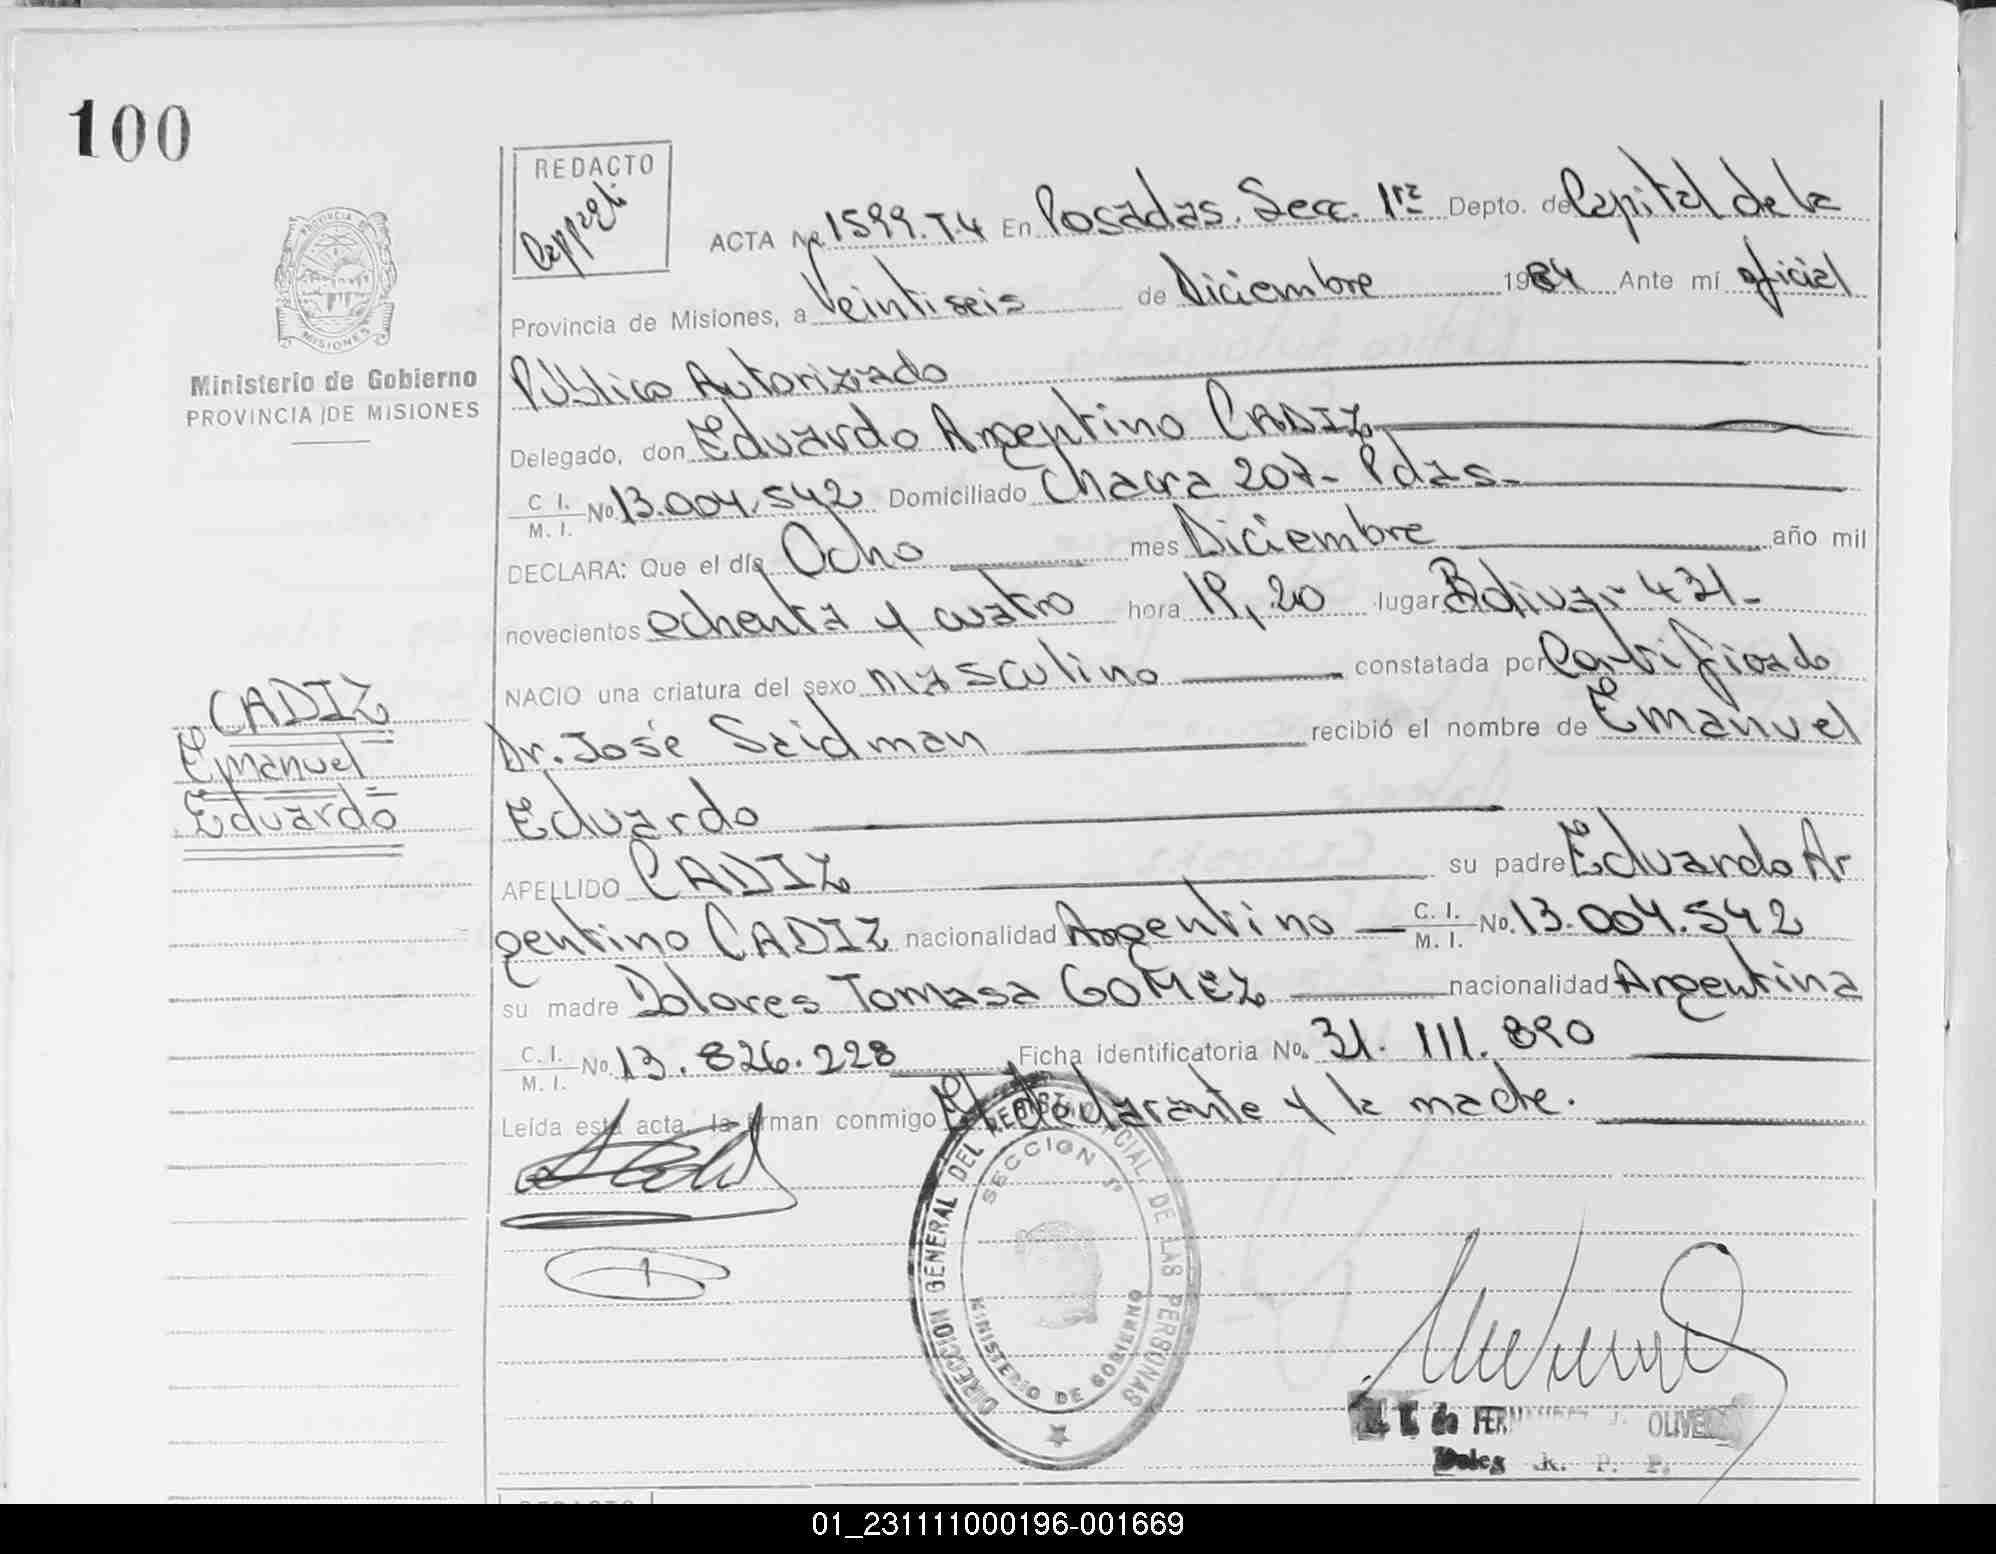 100
REDACTO
PROVINCIA DE
MISIONES
Ministerio de Gobierno
PROVINCIA DE MISIONES
ACTA Nº 1599. T.4 En Posadas. Secc. 1ra Depto. de Capital de la
Provincia de Misiones, a Veintiseis de Diciembre 1984 Ante mí oficial
Público Autorizado
Delegado, don Eduardo Argentino CADIZ
C. I. / M. I. No 13.004.542 Domiciliado Chacra 207- Pdas-
DECLARA: Que el día Ocho mes Diciembre año mil
novecientos ochenta y cuatro hora 19,20 lugar Bolivar 431-
NACIO una criatura del sexo masculino constatada por Certificado
Dr. José Saidman recibió el nombre de Emanuel
Eduardo
APELLIDO CADIZ su padre Eduardo Ar
gentino CADIZ nacionalidad Argentino C. I. / M. I. No. 13.004.542
su madre Dolores Tomasa GOMEZ nacionalidad Argentina
C. I. / M. I. No. 13.826.228 Ficha identificatoria No. 31.111.890
Leída esta acta, la firman conmigo El declarante y la madre.
CADIZ
Emanuel
Eduardo
DIRECCION GENERAL DEL REGISTRO PROVINCIAL DE LAS PERSONAS
SECCION 1ª
MINISTERIO DE GOBIERNO
de FERNANDEZ OLIVEIRA
Deleg R. P. P.
REDACTO
01_231111000196-001669